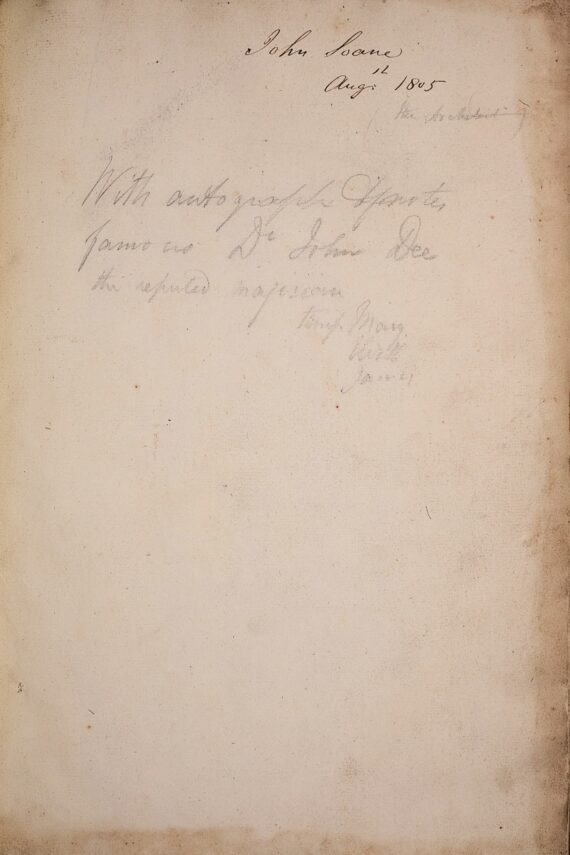 John Soane
Augst 1805
(the Architect)
With autograph & notes
famous Dr John Dee
the reputed magician
temp. Mary
Eliz
James